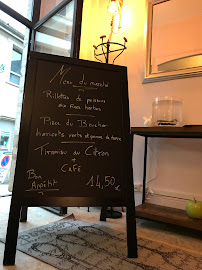 Menu du marché
Rillettes de poissons
aux fines herbes
Pièce du Boucher
haricots verts et pomme de terre
Tiramisu au Citron
+
Café
Bon
Appétit
14,50€